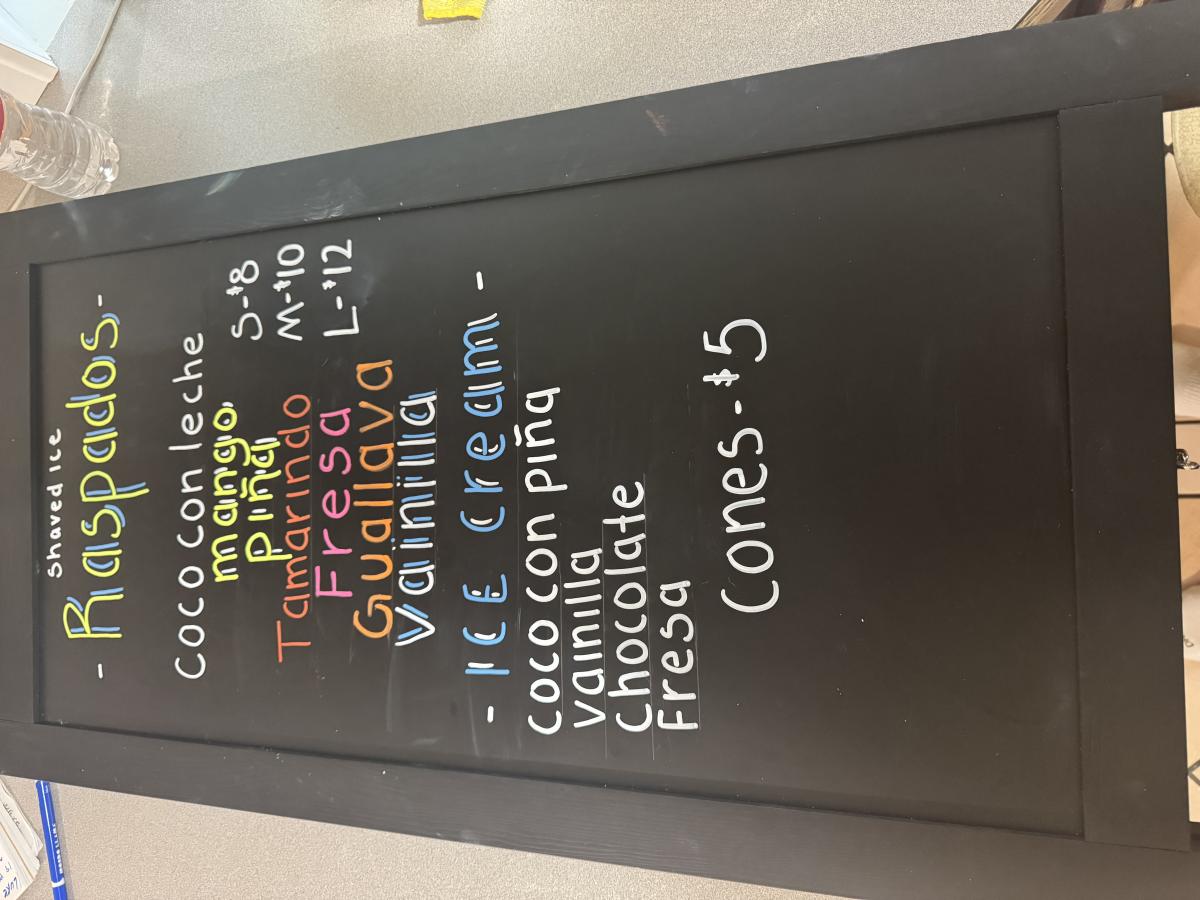 shaved ice
- Raspados -
coco con leche
mango
piña
Tamarindo
Fresa
Guallava
vainilla
S-$8
M-$10
L-$12
- ICE Cream -
coco con piña
vainilla
Chocolate
Fresa
Cones-$5